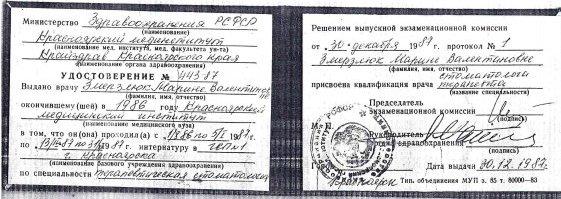 Министерство Здравоохранения РСФСР
(наименование)
Красноярский мединститут
(наименование мед. института, мед. факультета ун-та)
Крайздрав Красноярского края
(наименование органа здравоохранения)
УДОСТОВЕРЕНИЕ № 44387
Выдано врачу Змерзлюк Марине Валентиновне
(фамилия, имя, отчество)
окончившему (шей) в 1986 году Красноярский
медицинский институт
(наименование медицинского вуза)
в том, что он(она) проходил(а) с
по интернатуру в
г. Красноярска
(наименование базового учреждения здравоохранения)
по специальности терапевтическая стоматология
Решением выпускной экзаменационной комиссии
от «30» декабря 1987 г. протокол № 1
Змерзлюк Марине Валентиновне
(фамилия, имя, отчество)
присвоена квалификация врача стоматолога
терапевта
(название специальности)
Председатель
экзаменационной комиссии
(подпись)
М. П.
Руководитель
здравоохранения
(подпись)
Дата выдачи 30.12.1987
г. Красноярск
Тип. объединения МУП з. 85 т. 80000—83